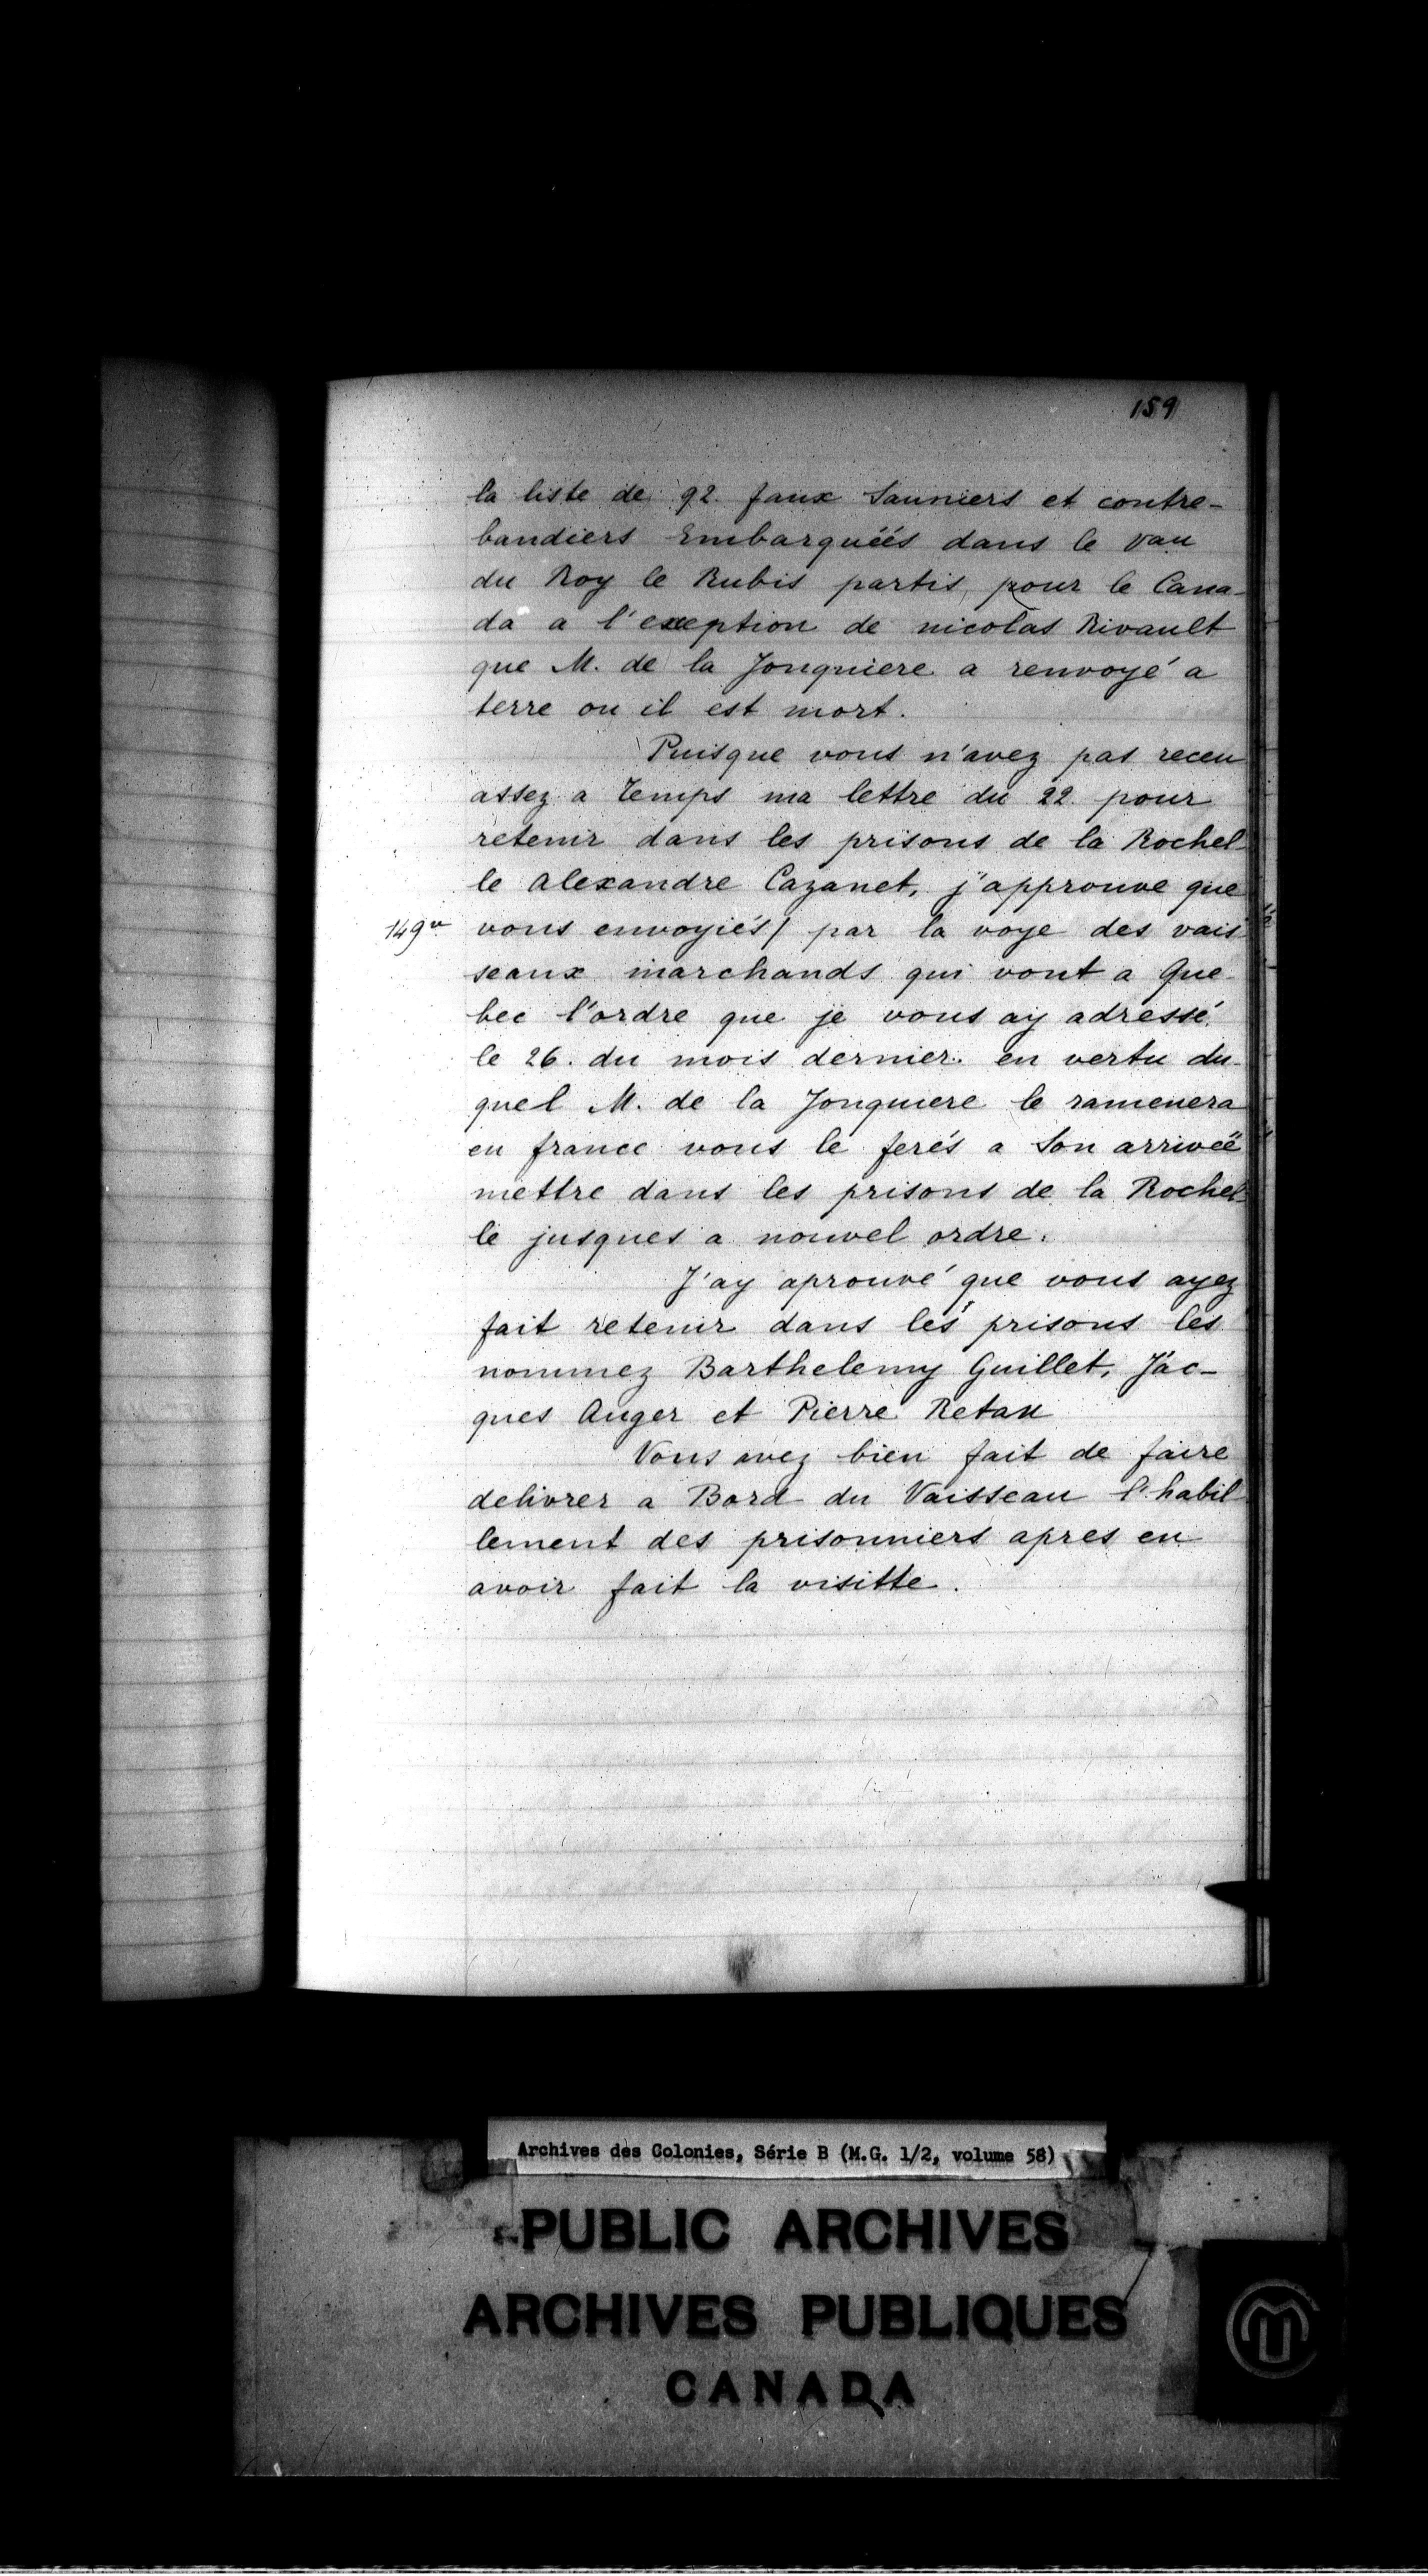 159
la liste de 92. faux Sauniers et contre-
bandiers Embarquéés dans le vau
du Roy le Rubis partis, pour le Cana-
da a l'exeption de nicolas Rivault
que M. de la Jonquiere a renvoyé a
terre ou il est mort.
Puisque vous n'avez pas receu
assez a temps ma lettre du 22. pour
retenir dans les prisons de la Rochel-
le alexandre Cazanet, j'approuve que
149 vo vous envoyiés/ par la voye des vais-
seaux marchands qui vont a Que-
bec l'ordre que je vous ay adressé
le 26. du mois dernier. en vertu du-
quel M. de la Jonquiere le ramenera
en france vous le ferés a Son arrivéé
mettre dans les prisons de la Rochel-
le jusques a nouvel ordre.
J'ay aprouvé que vous ayez
fait retenir dans les prisons les
nommez Barthelemy Guillet, Jac-
ques Auger et Pierre Retau
Vous avez bien fait de faire
delivrer a Bord du Vaisseau l'habil-
lement des prisonniers apres en
avoir fait la visitte.
Archives des Colonies, Série B (M.G. 1/2, volume 58)
PUBLIC ARCHIVES
ARCHIVES PUBLIQUES
CANADA